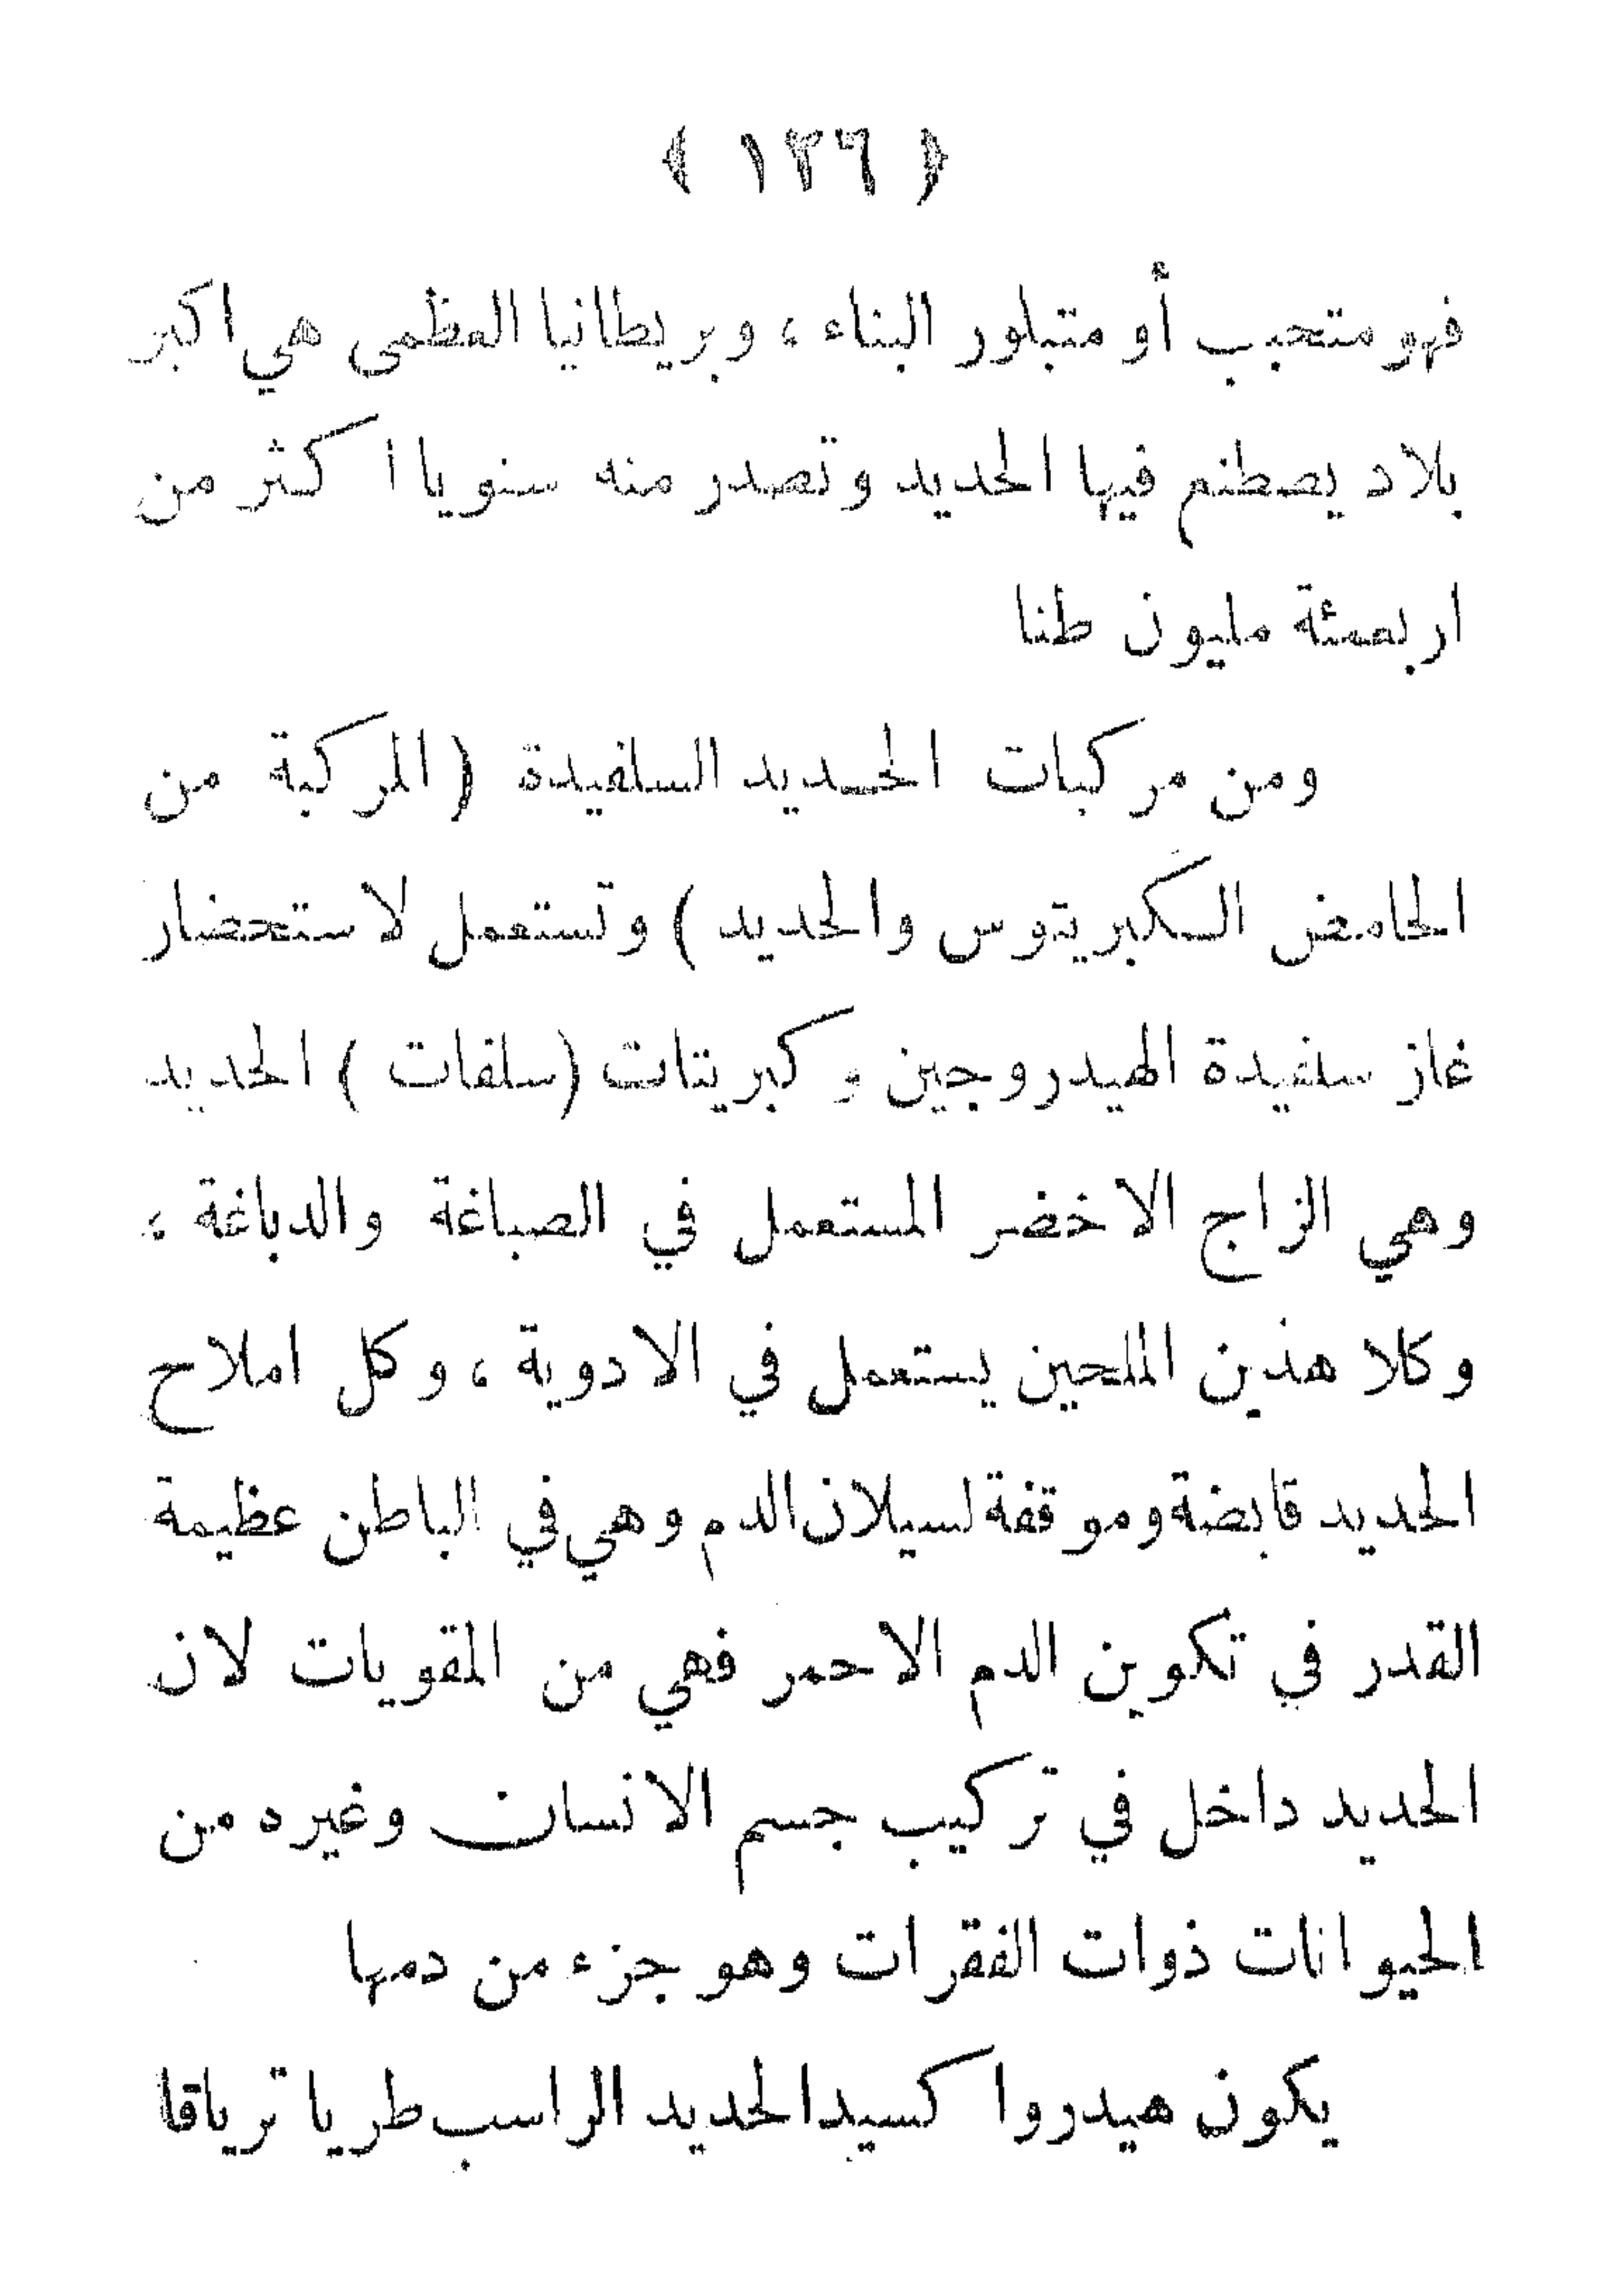 ﴿ ١٣٦ ﴾
فهو متحبب أو متبلور البناء ، وبريطانيا العظمى هي اكبر
بلاد يصطنع فيها الحديد وتصدر منه سنويا اكثر من
اربعمئة مليون طنا
ومن مركبات الحديد السلفيدة ( المركبة من
الحامض الكبريتوس والحديد ) وتستعمل لاستحضار
غاز سلفيدة الهيدروجين وكبريتات ( سلفات ) الحديد
وهي الزاج الاخضر المستعمل في الصباغة والدباغة ،
وكلا هذين الملحين يستعمل في الادوية ، وكل املاح
الحديد قابضة وموقفة لسيلان الدم وهي في الباطن عظيمة
القدر في تكوين الدم الاحمر فهي من المقويات لان
الحديد داخل في تركيب جسم الانسان وغيره من
الحيوانات ذوات الفقرات وهو جزء من دمها
يكون هيدروا كسيد الحديد الراسب طريا ترياقا